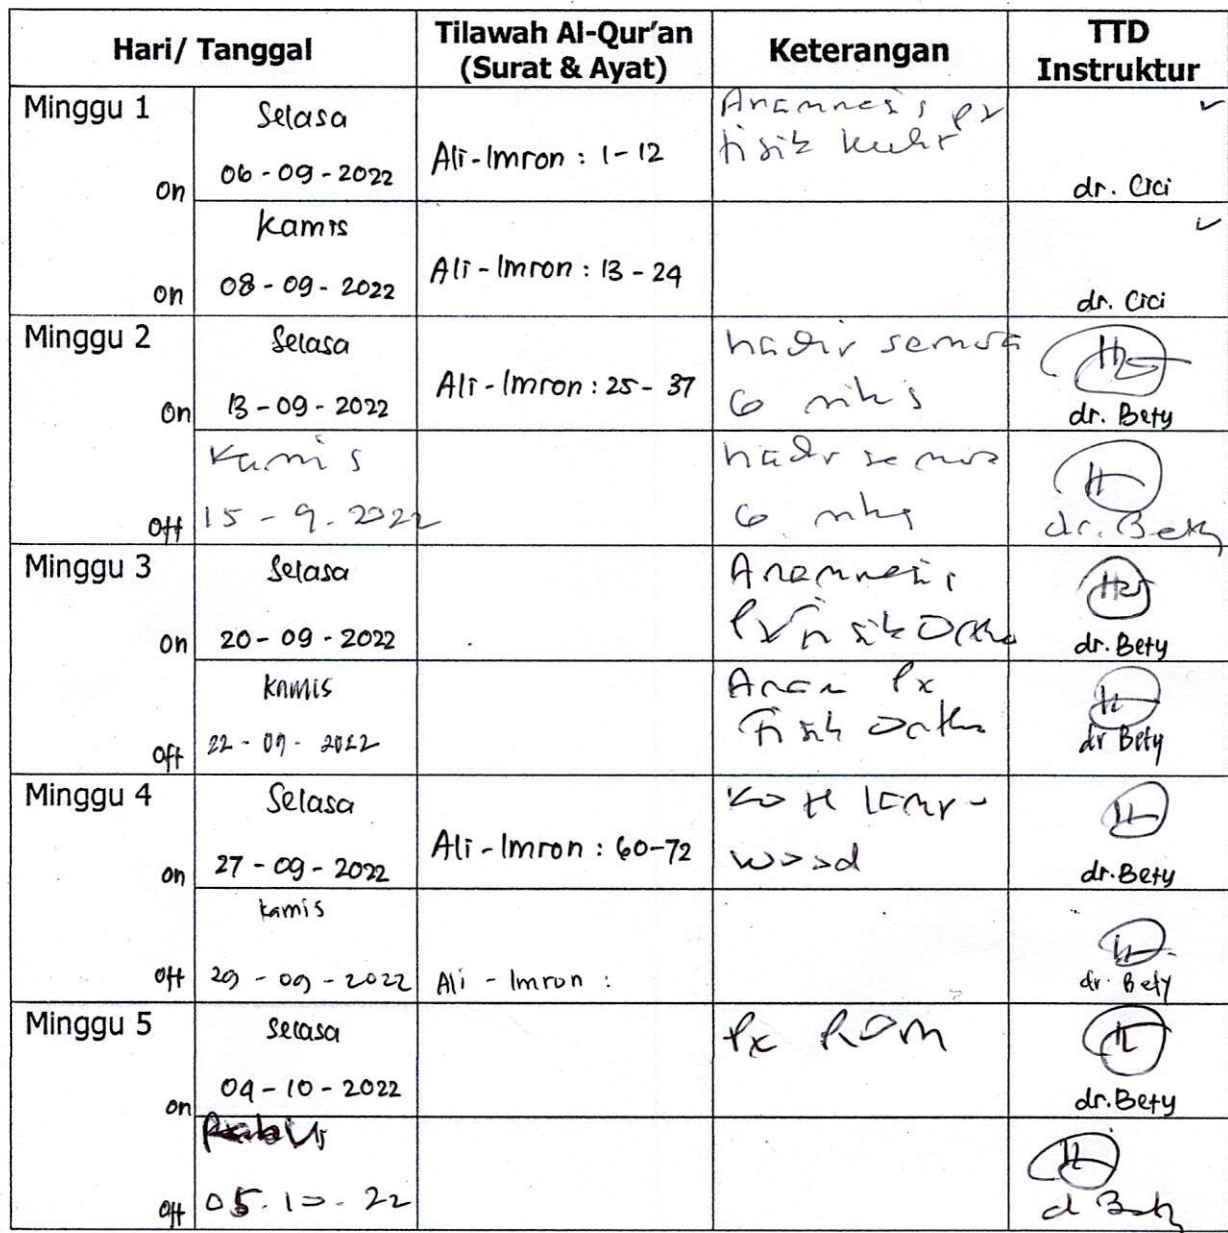 Hari/ Tanggal
Tilawah Al-Qur'an
(Surat & Ayat)
Keterangan
TTD
Instruktur
Minggu 1
on
Selasa
06-09-2022
Ali-Imron : 1-12
Anamnesis Px
fisik kulit
dr. Cici
on
Kamis
08-09-2022
Ali-Imron : 13-24
dr. Cici
Minggu 2
on
Selasa
13-09-2022
Ali-Imron : 25-37
hadir semua
6 mhs
dr. Bety
Off
Kamis
15-9-2022
hadir semua
6 mhs
dr. Bety
Minggu 3
on
Selasa
20-09-2022
Anamnesis
Px fisik Ortho
dr. Bety
Off
KAMIS
22-09-2022
Anam Px
Fisik Ortho
dr Bety
Minggu 4
on
Selasa
27-09-2022
Ali-Imron : 60-72
wood
dr. Bety
Off
kamis
29-09-2022
Ali-Imron :
dr. Bety
Minggu 5
on
Selasa
04-10-2022
Px ROM
dr. Bety
Off
05.10.22
d Bety